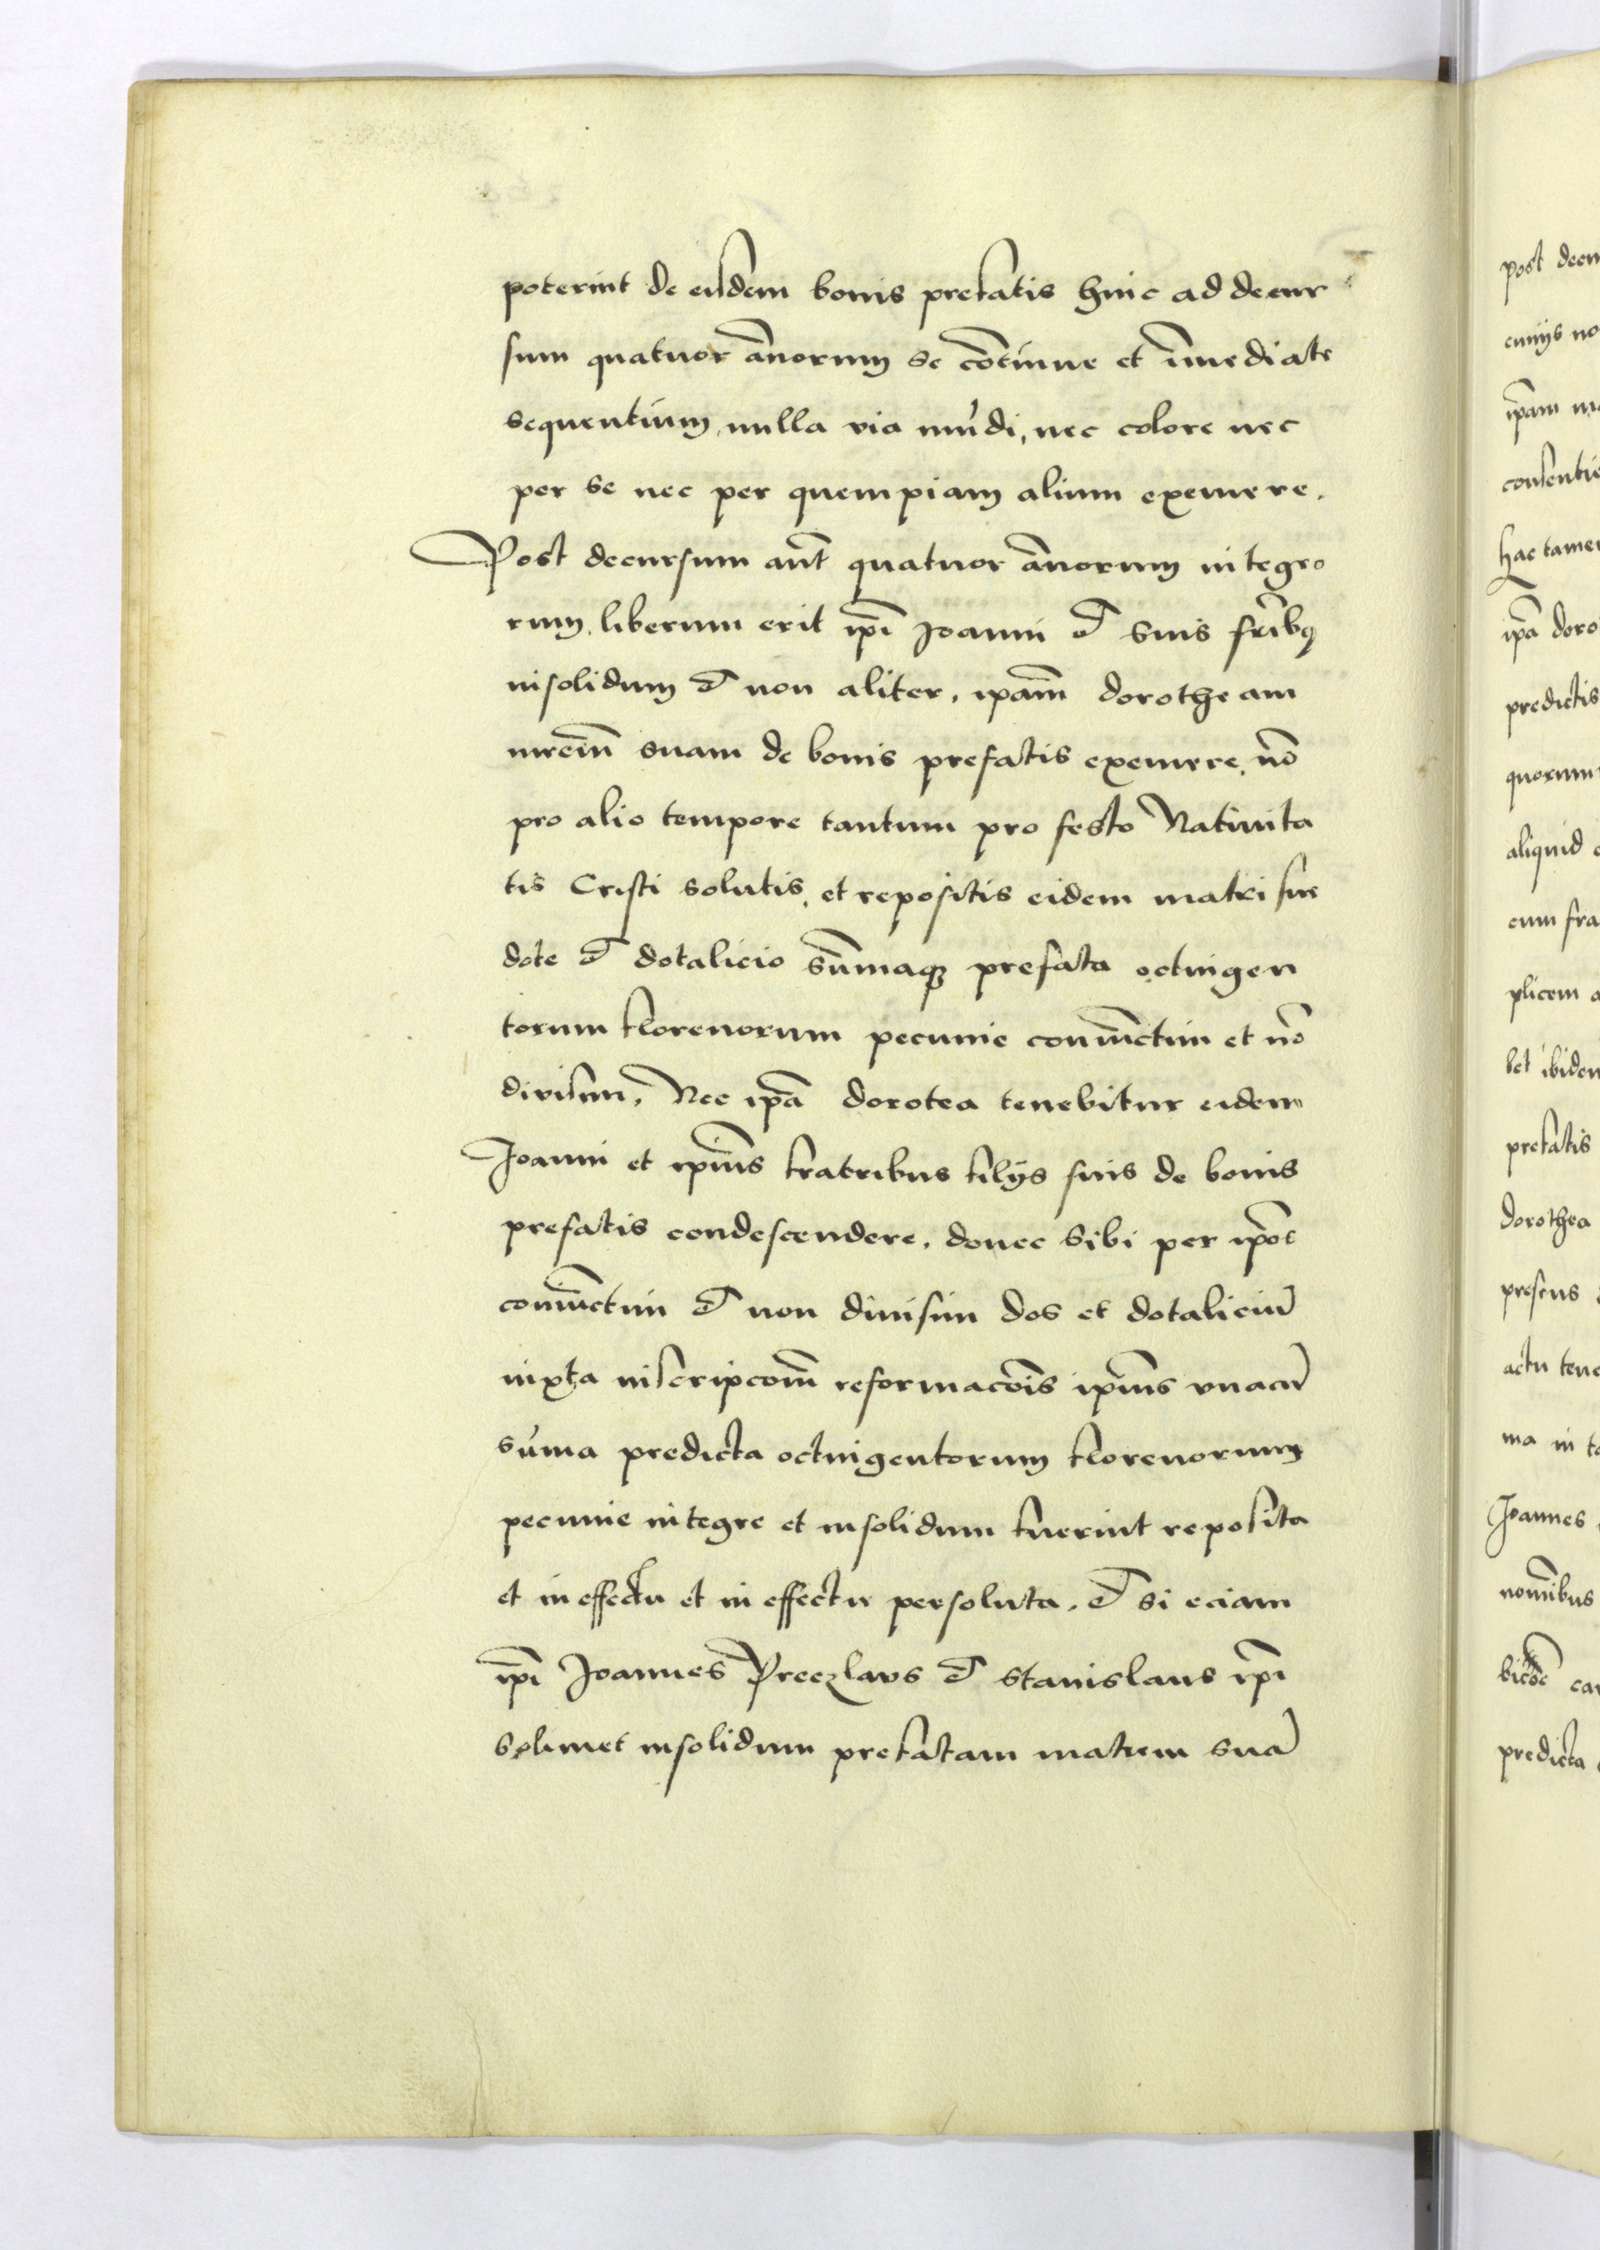 poterint de eisdem bonis prefatis hinc ad decur
sum quatuor ānorum se cōtinue et īmediate
sequentium, nulla via mūdi, nec colore nec
per se nec per quempiam alium exemere.
Post decursum aūt quatuor ānorum integro
rum, liberum erit ip̄i Joanni et suis fr̄ibus
insolidum et non aliter, ip̄am dorotheam
mr̄em suam de bonis prefatis exemere, nō
pro alio tempore tantum pro festo Nativita
tis Cristi solutis, et repositis eidem matri sue
dote et dotalicio sūmaque prefata octingen
torum florenorum pecunie coniūctim et nō
divisim. Nec ip̄a dorotea tenebitur eidem
Joanni et ip̄ius fratribus filijs suis de bonis
prefatis condescendere, donec sibi per ip̄os
coniūctim et non divisim dos et dotaliciū
iuxta inscripcōem reformacōis ip̄ius vnacū
sūma predicta octingentorum florenorum
pecunie integre et insolidum fuerint reposita
et in effectu et in effectu persoluta. et si eciam
ip̄i Joannes Preczlavs et Stanislaus ip̄i
solimet insolidum prefatam matrem suā
post decur
ip̄am
hac tamen
ip̄a doro
predictis
quorum
aliquid
cum fra
plicem
let ibidem
prefatis
dorothea
presens
actu tene
ma in
Joannes
predicta